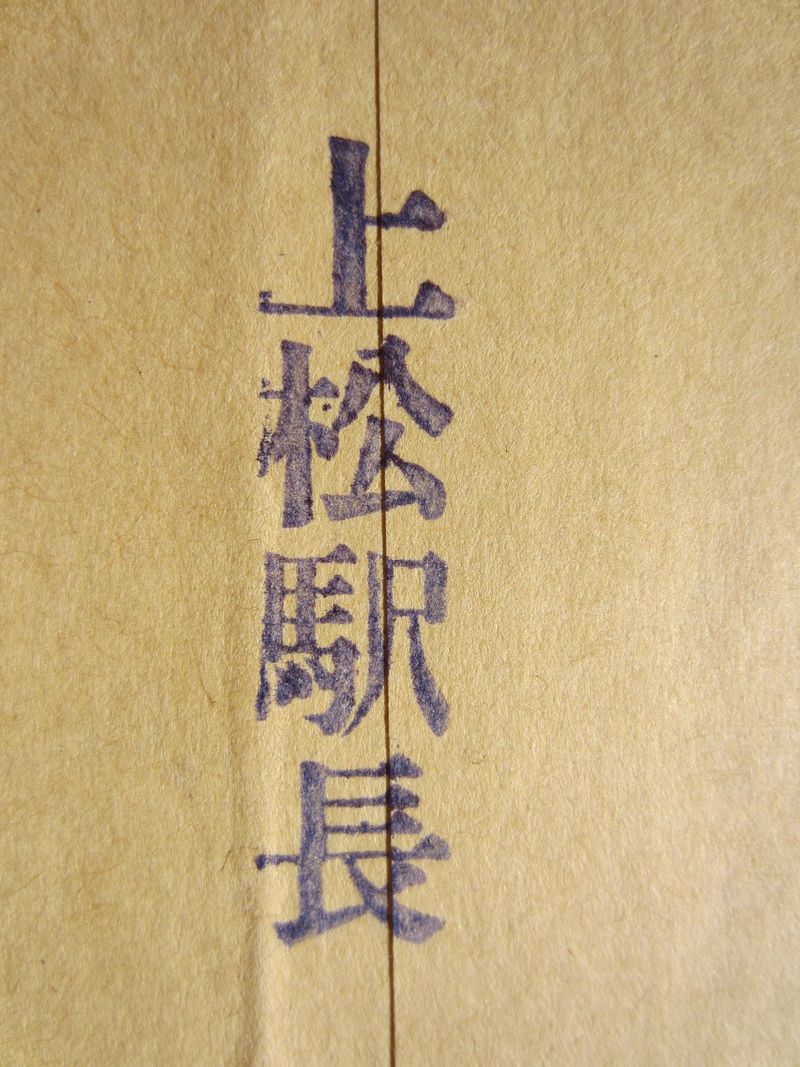 上松駅長